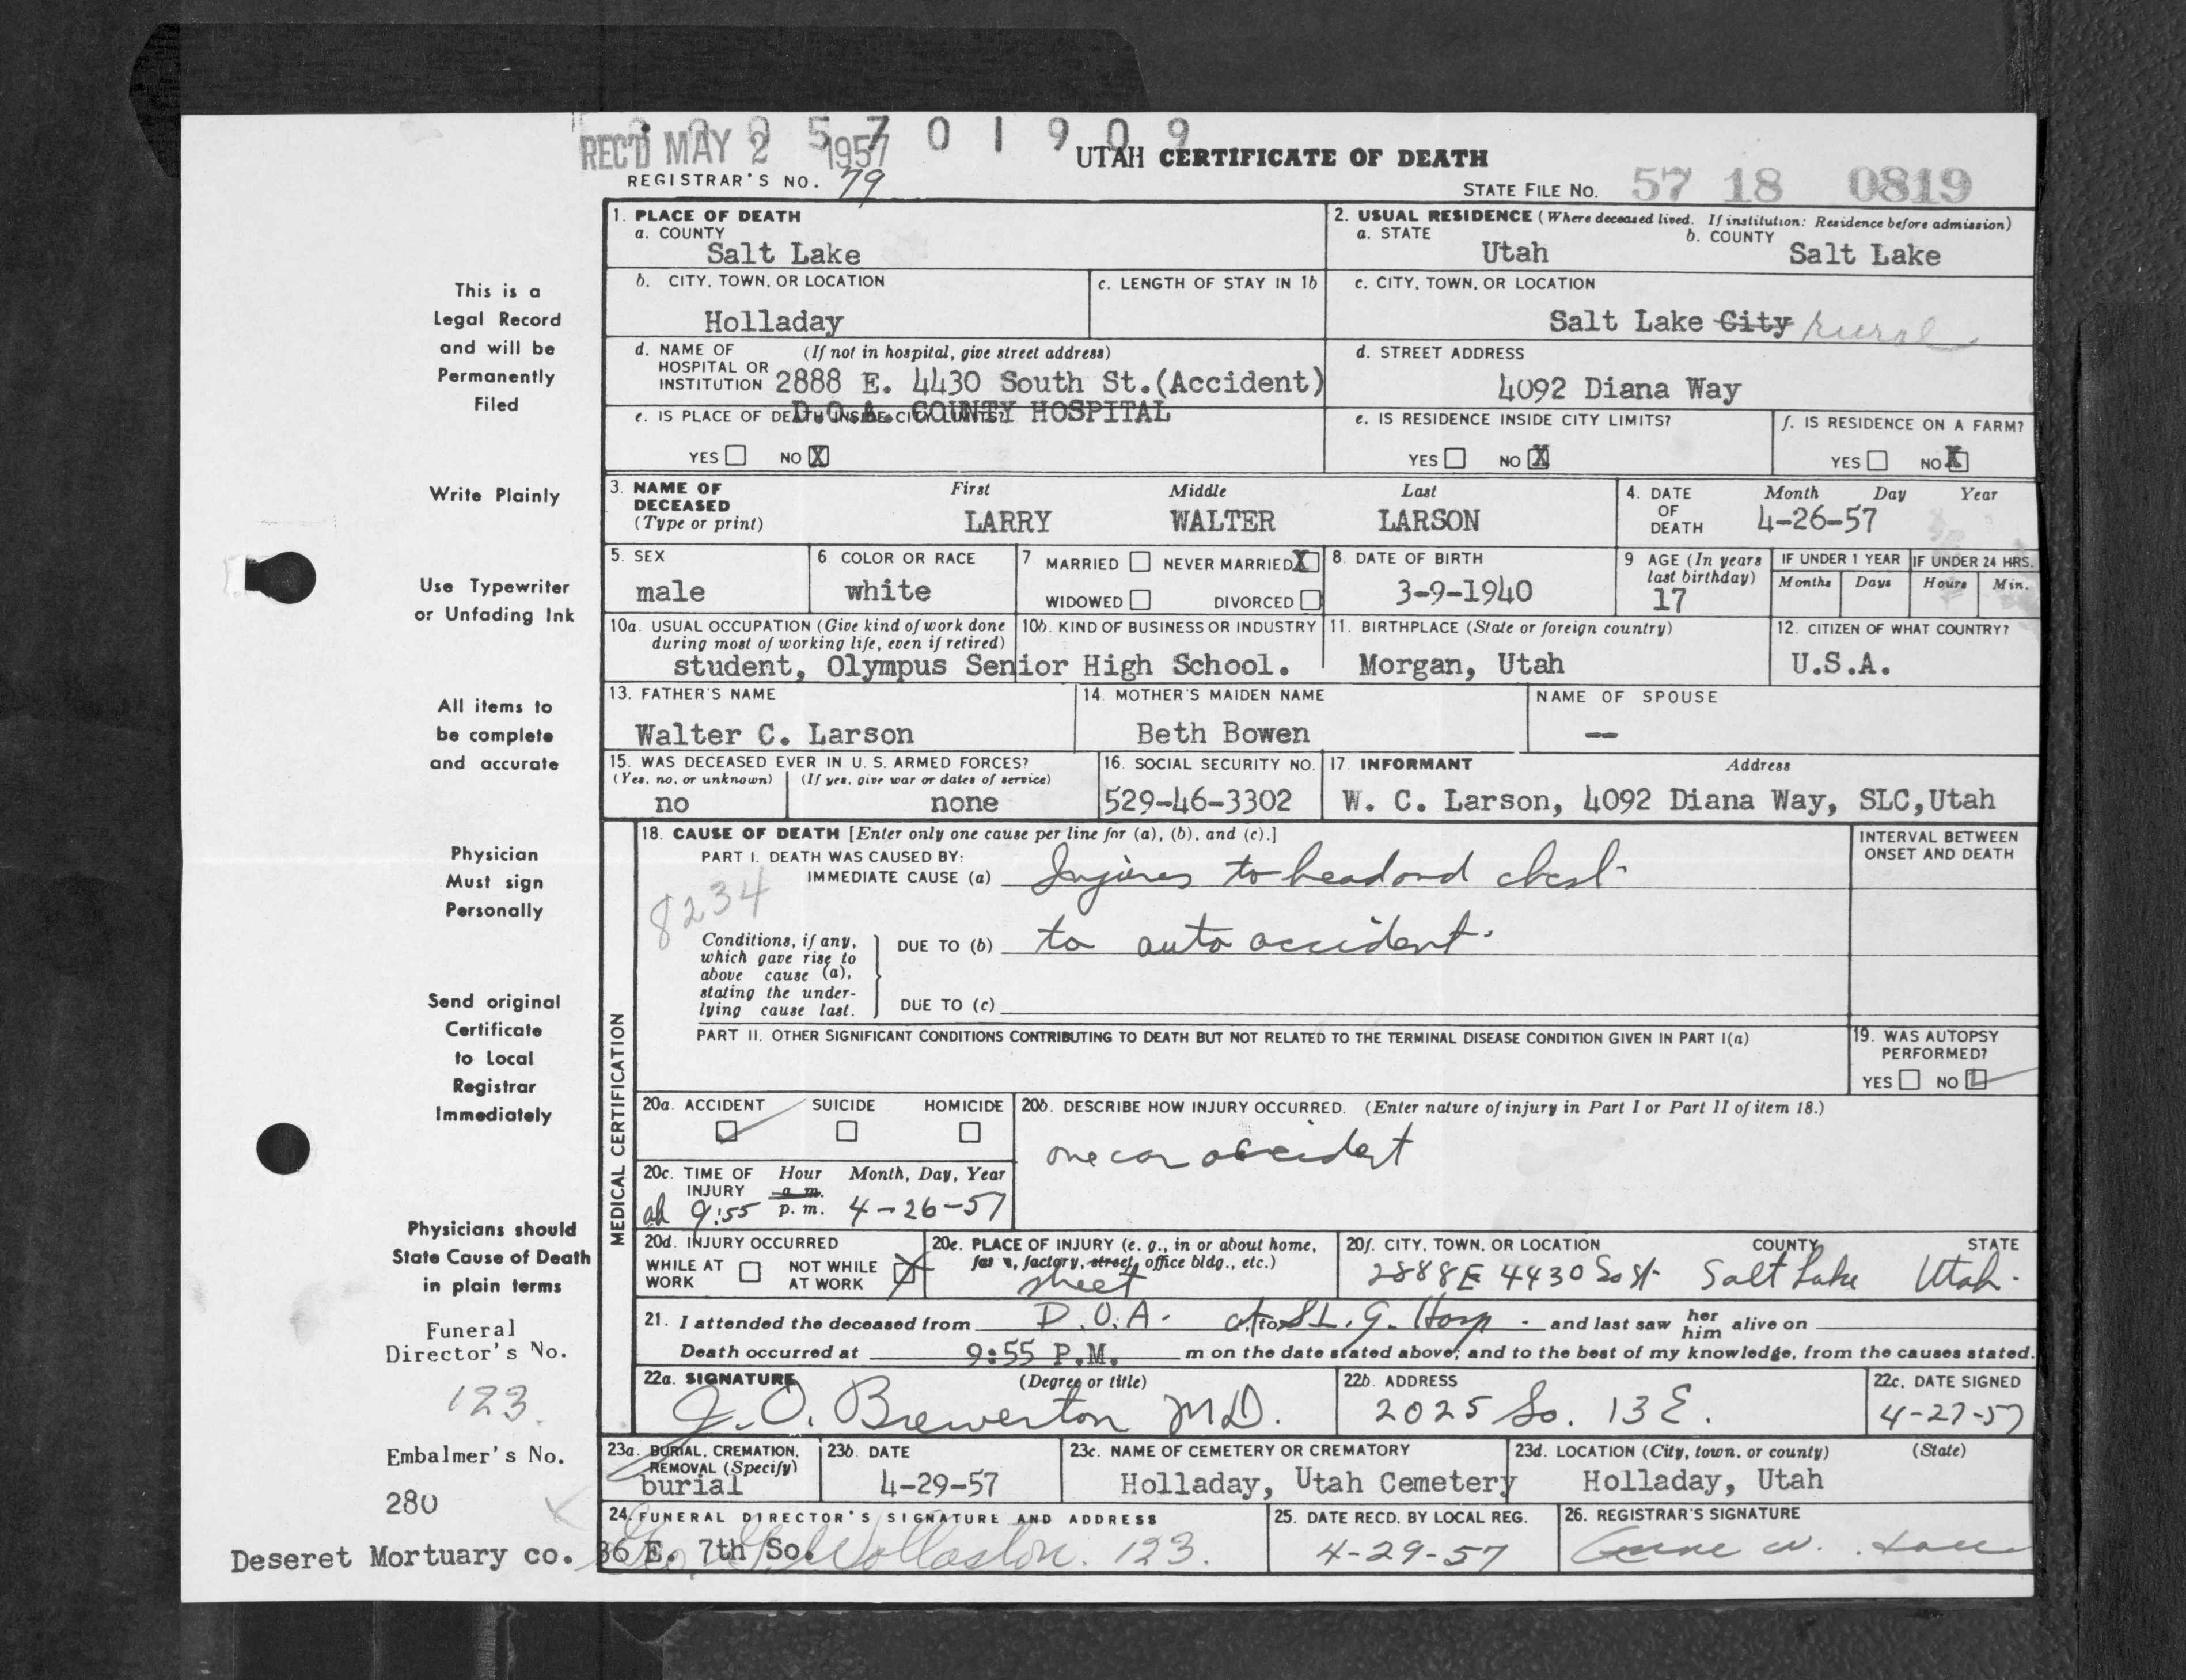 REC'D MAY 2 1957
5 7 0 1 9 0 9
UTAH CERTIFICATE OF DEATH
REGISTRAR'S NO. 79
STATE FILE NO. 57 18 0819
1. PLACE OF DEATH
a. COUNTY
Salt Lake
2. USUAL RESIDENCE (Where deceased lived. If institution: Residence before admission)
a. STATE Utah b. COUNTY Salt Lake
b. CITY, TOWN, OR LOCATION
Holladay
c. LENGTH OF STAY IN 1b
c. CITY, TOWN, OR LOCATION
Salt Lake City rural
d. NAME OF HOSPITAL OR INSTITUTION (If not in hospital, give street address)
2888 E. 4430 South St.(Accident)
D.O.A. COUNTY HOSPITAL
d. STREET ADDRESS
4092 Diana Way
e. IS PLACE OF DEATH INSIDE CITY LIMITS?
YES NO X
e. IS RESIDENCE INSIDE CITY LIMITS?
YES NO X
f. IS RESIDENCE ON A FARM?
YES NO X
3. NAME OF DECEASED (Type or print)
First Middle Last
LARRY WALTER LARSON
4. DATE OF DEATH
Month Day Year
4-26-57
5. SEX
male
6. COLOR OR RACE
white
7 MARRIED NEVER MARRIED X
WIDOWED DIVORCED
8. DATE OF BIRTH
3-9-1940
9 AGE (In years last birthday)
17
IF UNDER 1 YEAR
Months Days
IF UNDER 24 HRS.
Hours Min.
10a. USUAL OCCUPATION (Give kind of work done during most of working life, even if retired)
10b. KIND OF BUSINESS OR INDUSTRY
student, Olympus Senior High School.
11. BIRTHPLACE (State or foreign country)
Morgan, Utah
12. CITIZEN OF WHAT COUNTRY?
U.S.A.
13. FATHER'S NAME
Walter C. Larson
14. MOTHER'S MAIDEN NAME
Beth Bowen
NAME OF SPOUSE
--
15. WAS DECEASED EVER IN U. S. ARMED FORCES?
(Yes, no, or unknown) (If yes, give war or dates of service)
no none
16. SOCIAL SECURITY NO.
529-46-3302
17. INFORMANT Address
W. C. Larson, 4092 Diana Way, SLC,Utah
MEDICAL CERTIFICATION
18. CAUSE OF DEATH [Enter only one cause per line for (a), (b), and (c).]
PART I. DEATH WAS CAUSED BY:
IMMEDIATE CAUSE (a) Injuries to head and chest
8234
Conditions, if any, which gave rise to above cause (a), stating the underlying cause last.
DUE TO (b) to auto accident.
DUE TO (c)
INTERVAL BETWEEN ONSET AND DEATH
PART II. OTHER SIGNIFICANT CONDITIONS CONTRIBUTING TO DEATH BUT NOT RELATED TO THE TERMINAL DISEASE CONDITION GIVEN IN PART I(a)
19. WAS AUTOPSY PERFORMED?
YES NO
20a. ACCIDENT SUICIDE HOMICIDE
20b. DESCRIBE HOW INJURY OCCURRED. (Enter nature of injury in Part I or Part II of item 18.)
one car accident
20c. TIME OF INJURY Hour Month, Day, Year
a. m.
9:55 p. m. 4-26-57
20d. INJURY OCCURRED
WHILE AT WORK NOT WHILE AT WORK
20e. PLACE OF INJURY (e. g., in or about home, farm, factory, street, office bldg., etc.)
street
20f. CITY, TOWN, OR LOCATION COUNTY STATE
2888 E 4430 So St. Salt Lake Utah.
21. I attended the deceased from D.O.A. at to S.L. G. Hosp. and last saw her him alive on
Death occurred at 9:55 P.M. m on the date stated above; and to the best of my knowledge, from the causes stated.
22a. SIGNATURE (Degree or title)
J. O. Brewerton M.D.
22b. ADDRESS
2025 So. 13 E.
22c. DATE SIGNED
4-27-57
23a. BURIAL, CREMATION, REMOVAL (Specify)
burial
23b. DATE
4-29-57
23c. NAME OF CEMETERY OR CREMATORY
Holladay, Utah Cemetery
23d. LOCATION (City, town, or county) (State)
Holladay, Utah
24. FUNERAL DIRECTOR'S SIGNATURE AND ADDRESS
Deseret Mortuary co. 36 E. 7th So.
Wollaston. 123.
25. DATE RECD. BY LOCAL REG.
4-29-57
26. REGISTRAR'S SIGNATURE
This is a
Legal Record
and will be
Permanently
Filed
Write Plainly
Use Typewriter
or Unfading Ink
All items to
be complete
and accurate
Physician
Must sign
Personally
Send original
Certificate
to Local
Registrar
Immediately
Physicians should
State Cause of Death
in plain terms
Funeral
Director's No.
123.
Embalmer's No.
280